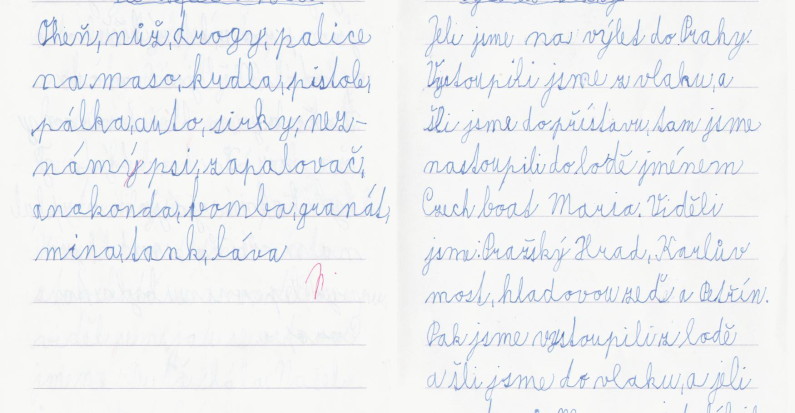 Oheň, nůž, drogy, palice
na maso, kudla, pistole,
pálka, auto, sirky, nez-
námý psi, zapalovač,
anakonda, bomba, granát,
mina, tank, láva
Jeli jsme na výlet do Prahy.
Vystoupili jsme z vlaku, a
šli jsme do přístavu, tam jsme
nastoupili do lodě jménem
Czech boat Maria. Viděli
jsme: Pražský Hrad, Karlův
most, hladovou zeď a Petřín.
Pak jsme vystoupili z lodě
a šli jsme do vlaku, a jeli